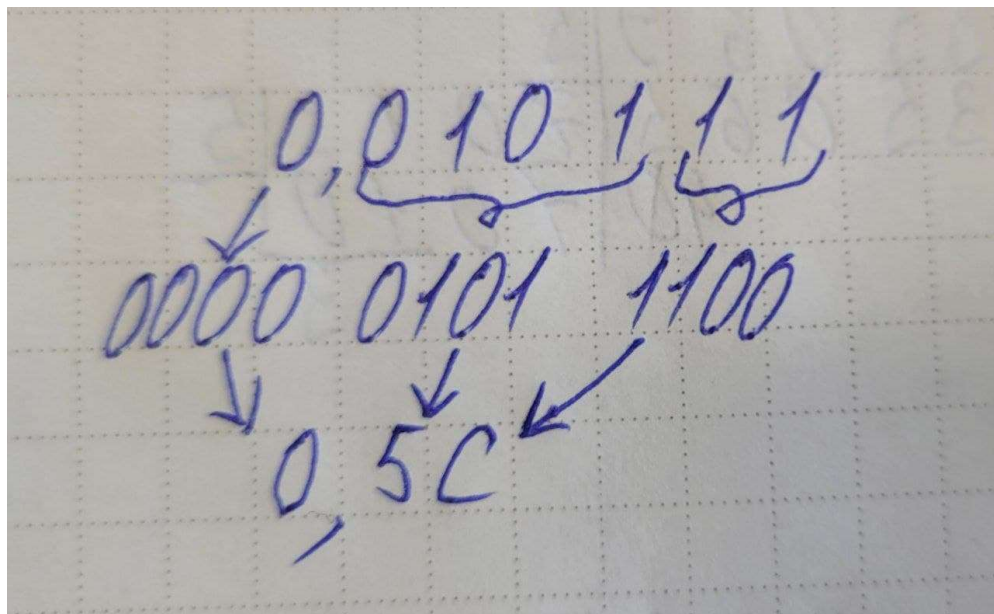 0,010111
0000 0101 1100
0,5C